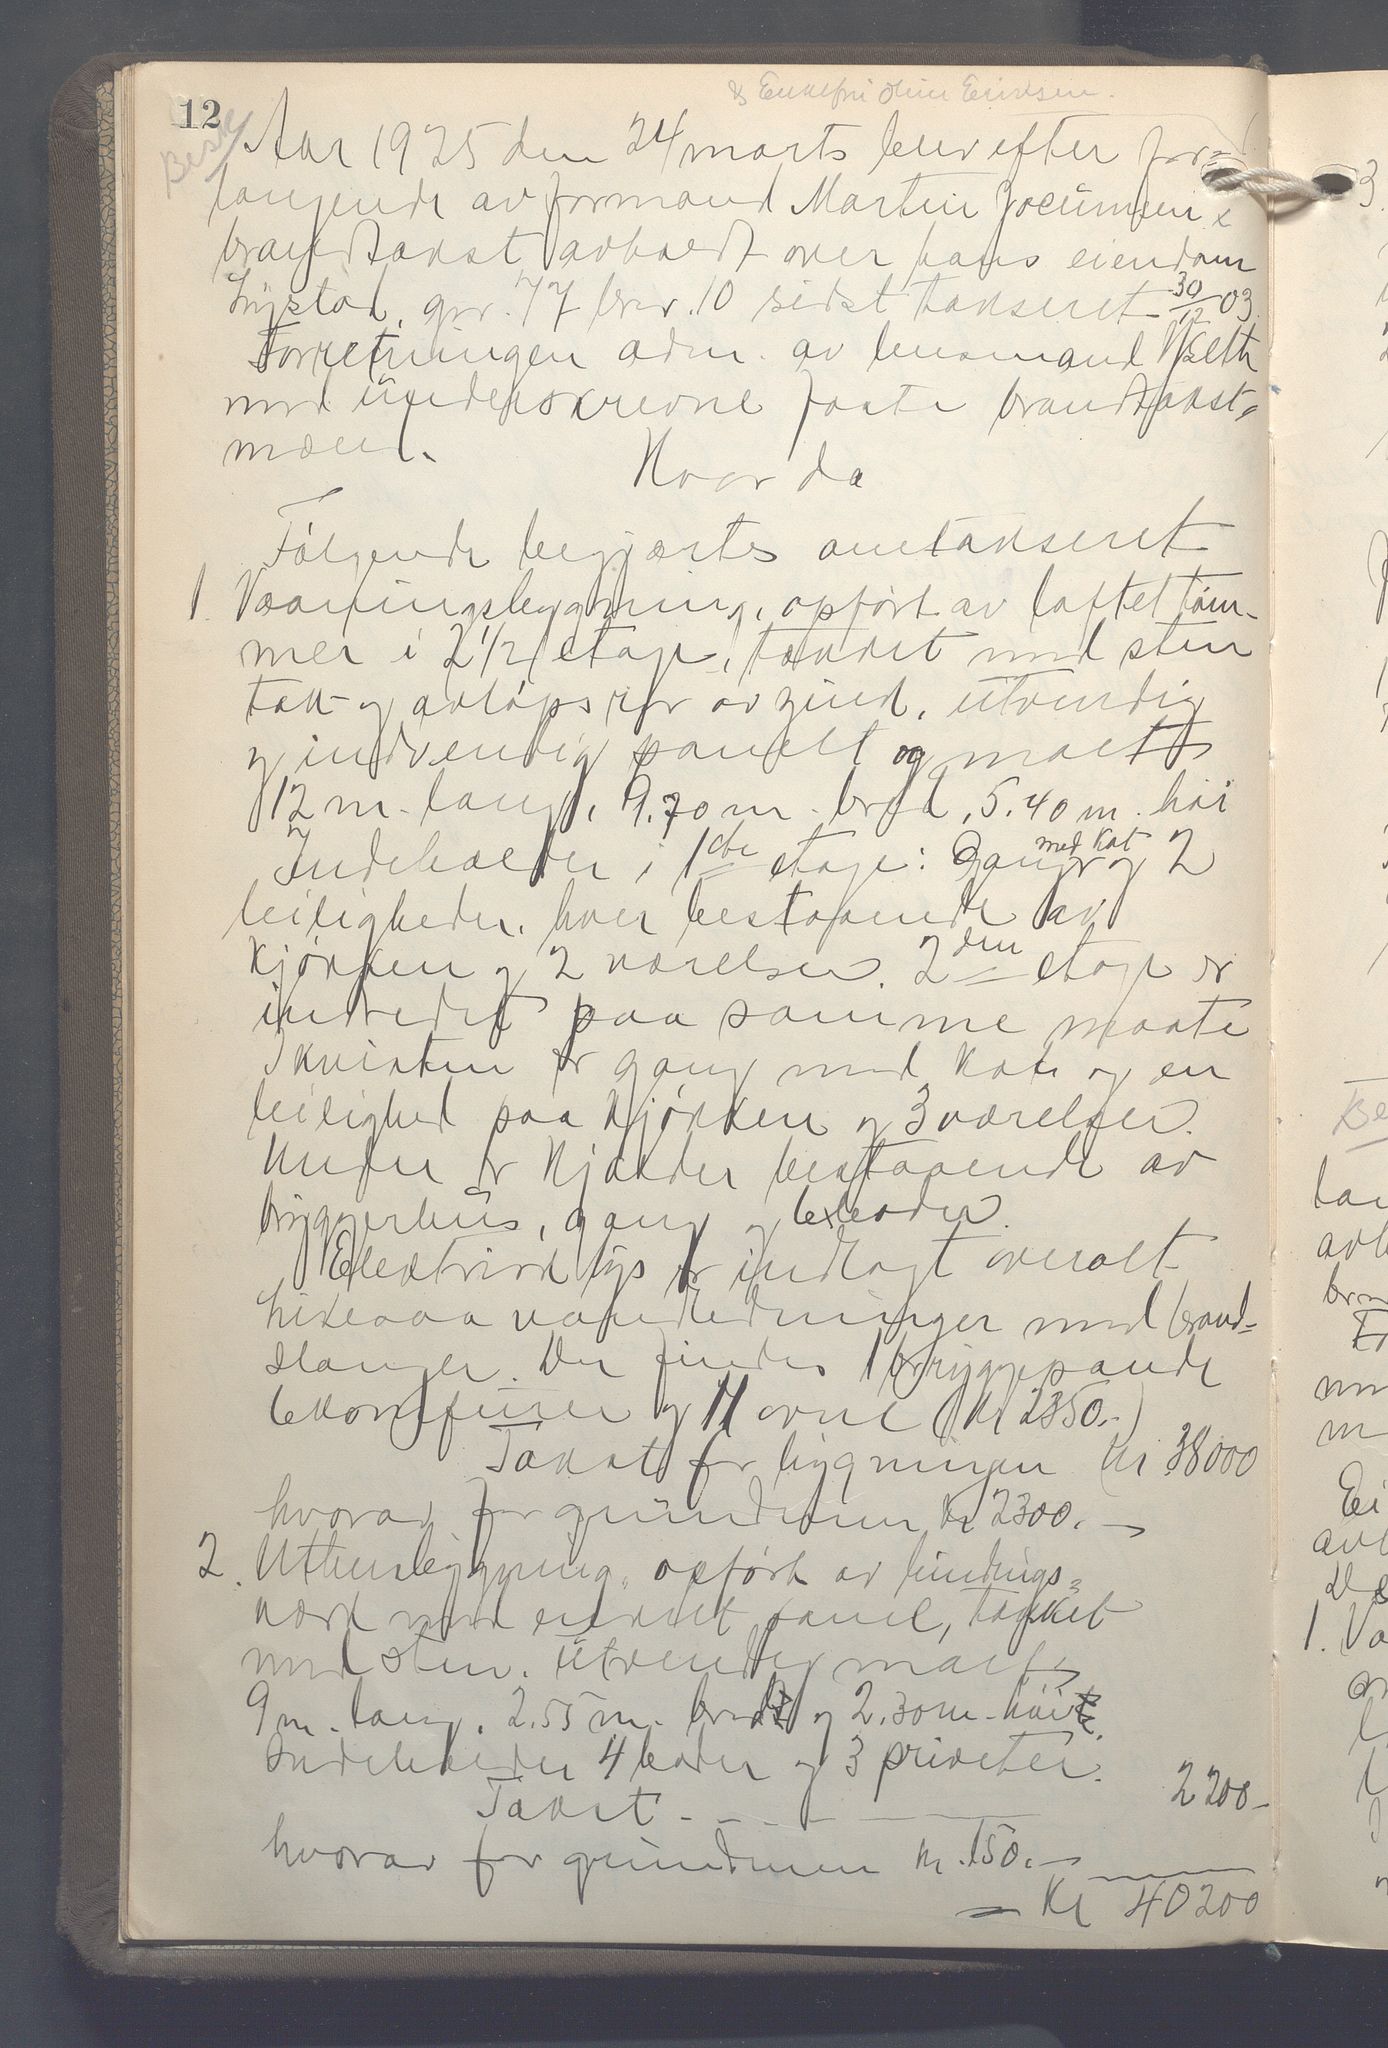 & Enkefru Oline Eriksen.
12
Besk
Aar 1925 den 24 marts blev efter for-
langende av formand Martin Jocumsen &
brandtakst avholdt over hans eiendom
Lystad, gnr. 77 bnr. 10 sidst takseret 30/12 03.
Forretningen adm. av lensmand
med underskrevne faste brandtakst-
mænd.
Hvor da
Følgende begjærtes omtakseret
1. Vaaningsbygning, opført av laftet tøm-
mer i 2 1/2 etage, tækket med sten
tak og avløpsrør av zink, utvendig
og indvendig panelt og malt
12 m. lang, 9.70 m. bred, 5.40 m. høi
Indeholder i 1ste etage: Gang med kot og 2
leiligheder, hver bestaaende av
kjøkken og 2 værelser. 2den etage er
indredet paa samme maate
I kvisten er gang med kot og en
leilighed paa kjøkken og 3 værelser.
Under er kjælder bestaaende av
bryggerhus, gang og 6 boder.
Elektrisk lys er indlagt overalt
likesaa vandledninger med brand-
slanger. Der findes 1 bryggepande
6 komfurer og 11 ovne (kr 2350.-)
Takst for bygningen kr 38000
hvorav for grundmur kr 2300.-
2. Uthusbygning, opført av bindings-
værk med enkelt panel, tækket
med sten. Utvendig malt
9 m. lang, 2.55 m. bredt og 2.30 m. høit.
Indeholder 4 boder og 3 priveter.
Takst - - - - 2200-
hvorav for grundmuren kr. 150.-
= Kr 40200